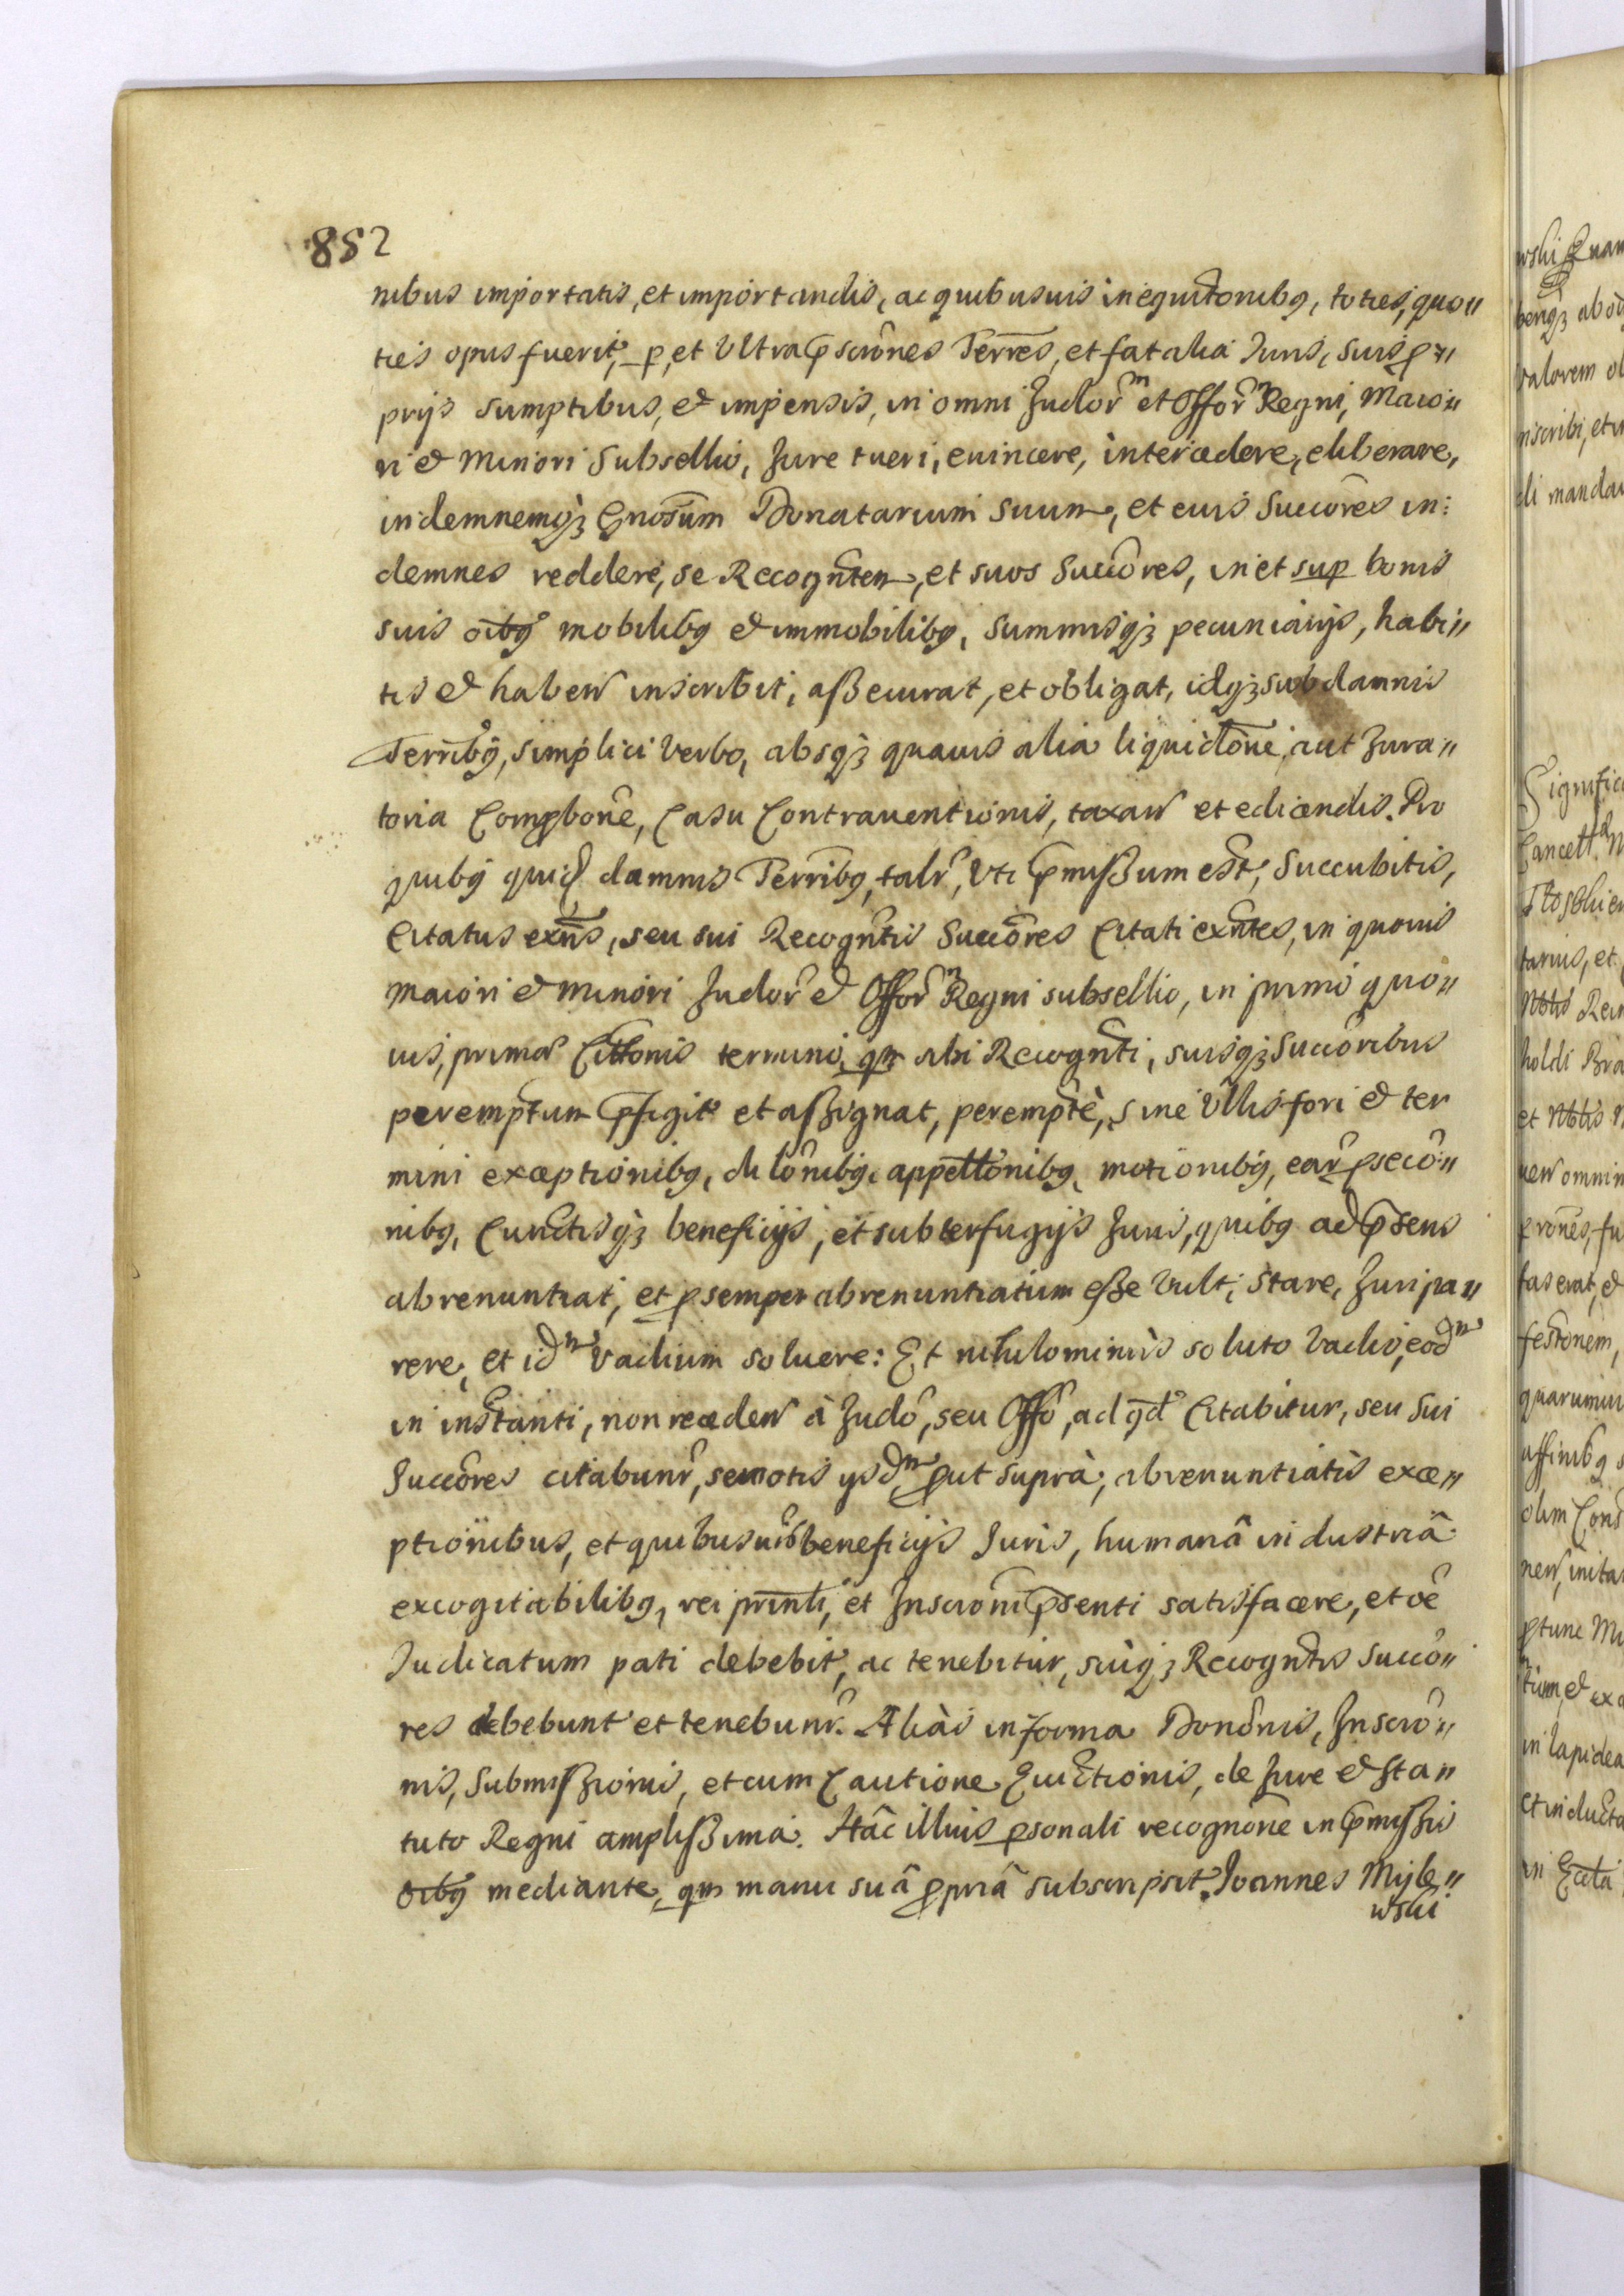 852
nibus importatis, et importandis, ac quibusuis inequitõnibq, toties, quo„
ties opus fuerit, p, et Vltra pscrõnes Terres, et fatalia Juris, suis p„
prijs sumptibus, et impensis, in omni Judor et Offor Regni, Maio„
ri et Minori Subsellio, Jure tueri, euincere, intercedere, eliberare,
indemnemqꝫ Gnosum Donatarium suum, et eius Succores in:
demnes reddere, se Recognten, et suos Succores, in et sup bonis
suis oibq mobilibq et immobilibq, summisqꝫ pecuniarijs, habi„
tis et haben inscribit, aßecurat, et obligat, idqꝫ sub damnis
Terribq, simplici verbo, absqꝫ quauis alia liquidtõne, aut Jura„
toria Compbone, Casu Contrauentionis, taxan et edicendis. Pro
quibq quid damnis Terribq, talr, Vti pmißum est, Succubitis,
Citatus exns, seu sui Recogntis Succores Citati exntes, in quouis
maiori et minori Judor et Offor Regni subsellio, in primo quo„
uis, primæ Cittonis termino, qm sibi Recognti, suisqꝫ Succoribus
peremptum pfigit et aßignat, perempte, sine Vllis fori et ter
mini exceptionibq, dilonibq, appellonibq, motionibq, ear psecõ„
nibq, Cunctisqꝫ beneficijs, et subterfugijs Juris, quibq ad psens
abrenuntiat, et p semper abrenuntiatum eße Vult, stare, Juri pa„
rere, et idm Vadium soluere: Et nihilominus soluto Vadio, eodm
in instanti, non receden à Judo, seu Offo, ad qd Citabitur, seu Sui
Succores citabunr, semotis ysdm, put suprà, abrenuntiatis exce„
ptionibus, et quibusuis beneficijs Juris, humanâ industriâ
excogitabilibq, rei prinli, et Inscrõni psenti satisfacere, et oe
Judicatum pati debebit, ac tenebitur, suiqꝫ Recogntis Succo„
res debebunt et tenebunr. Aliàs in forma Donõnis, Inscrõ„
nis, Submißionis, et cum Cautione Euictionis, de Jure et Sta„
tuto Regni amplißima. Hâc illius psonali recognõne in pmißis
oibq mediante, qm manu suâ ppriâ subscripsit. Joannes Myle„
wski